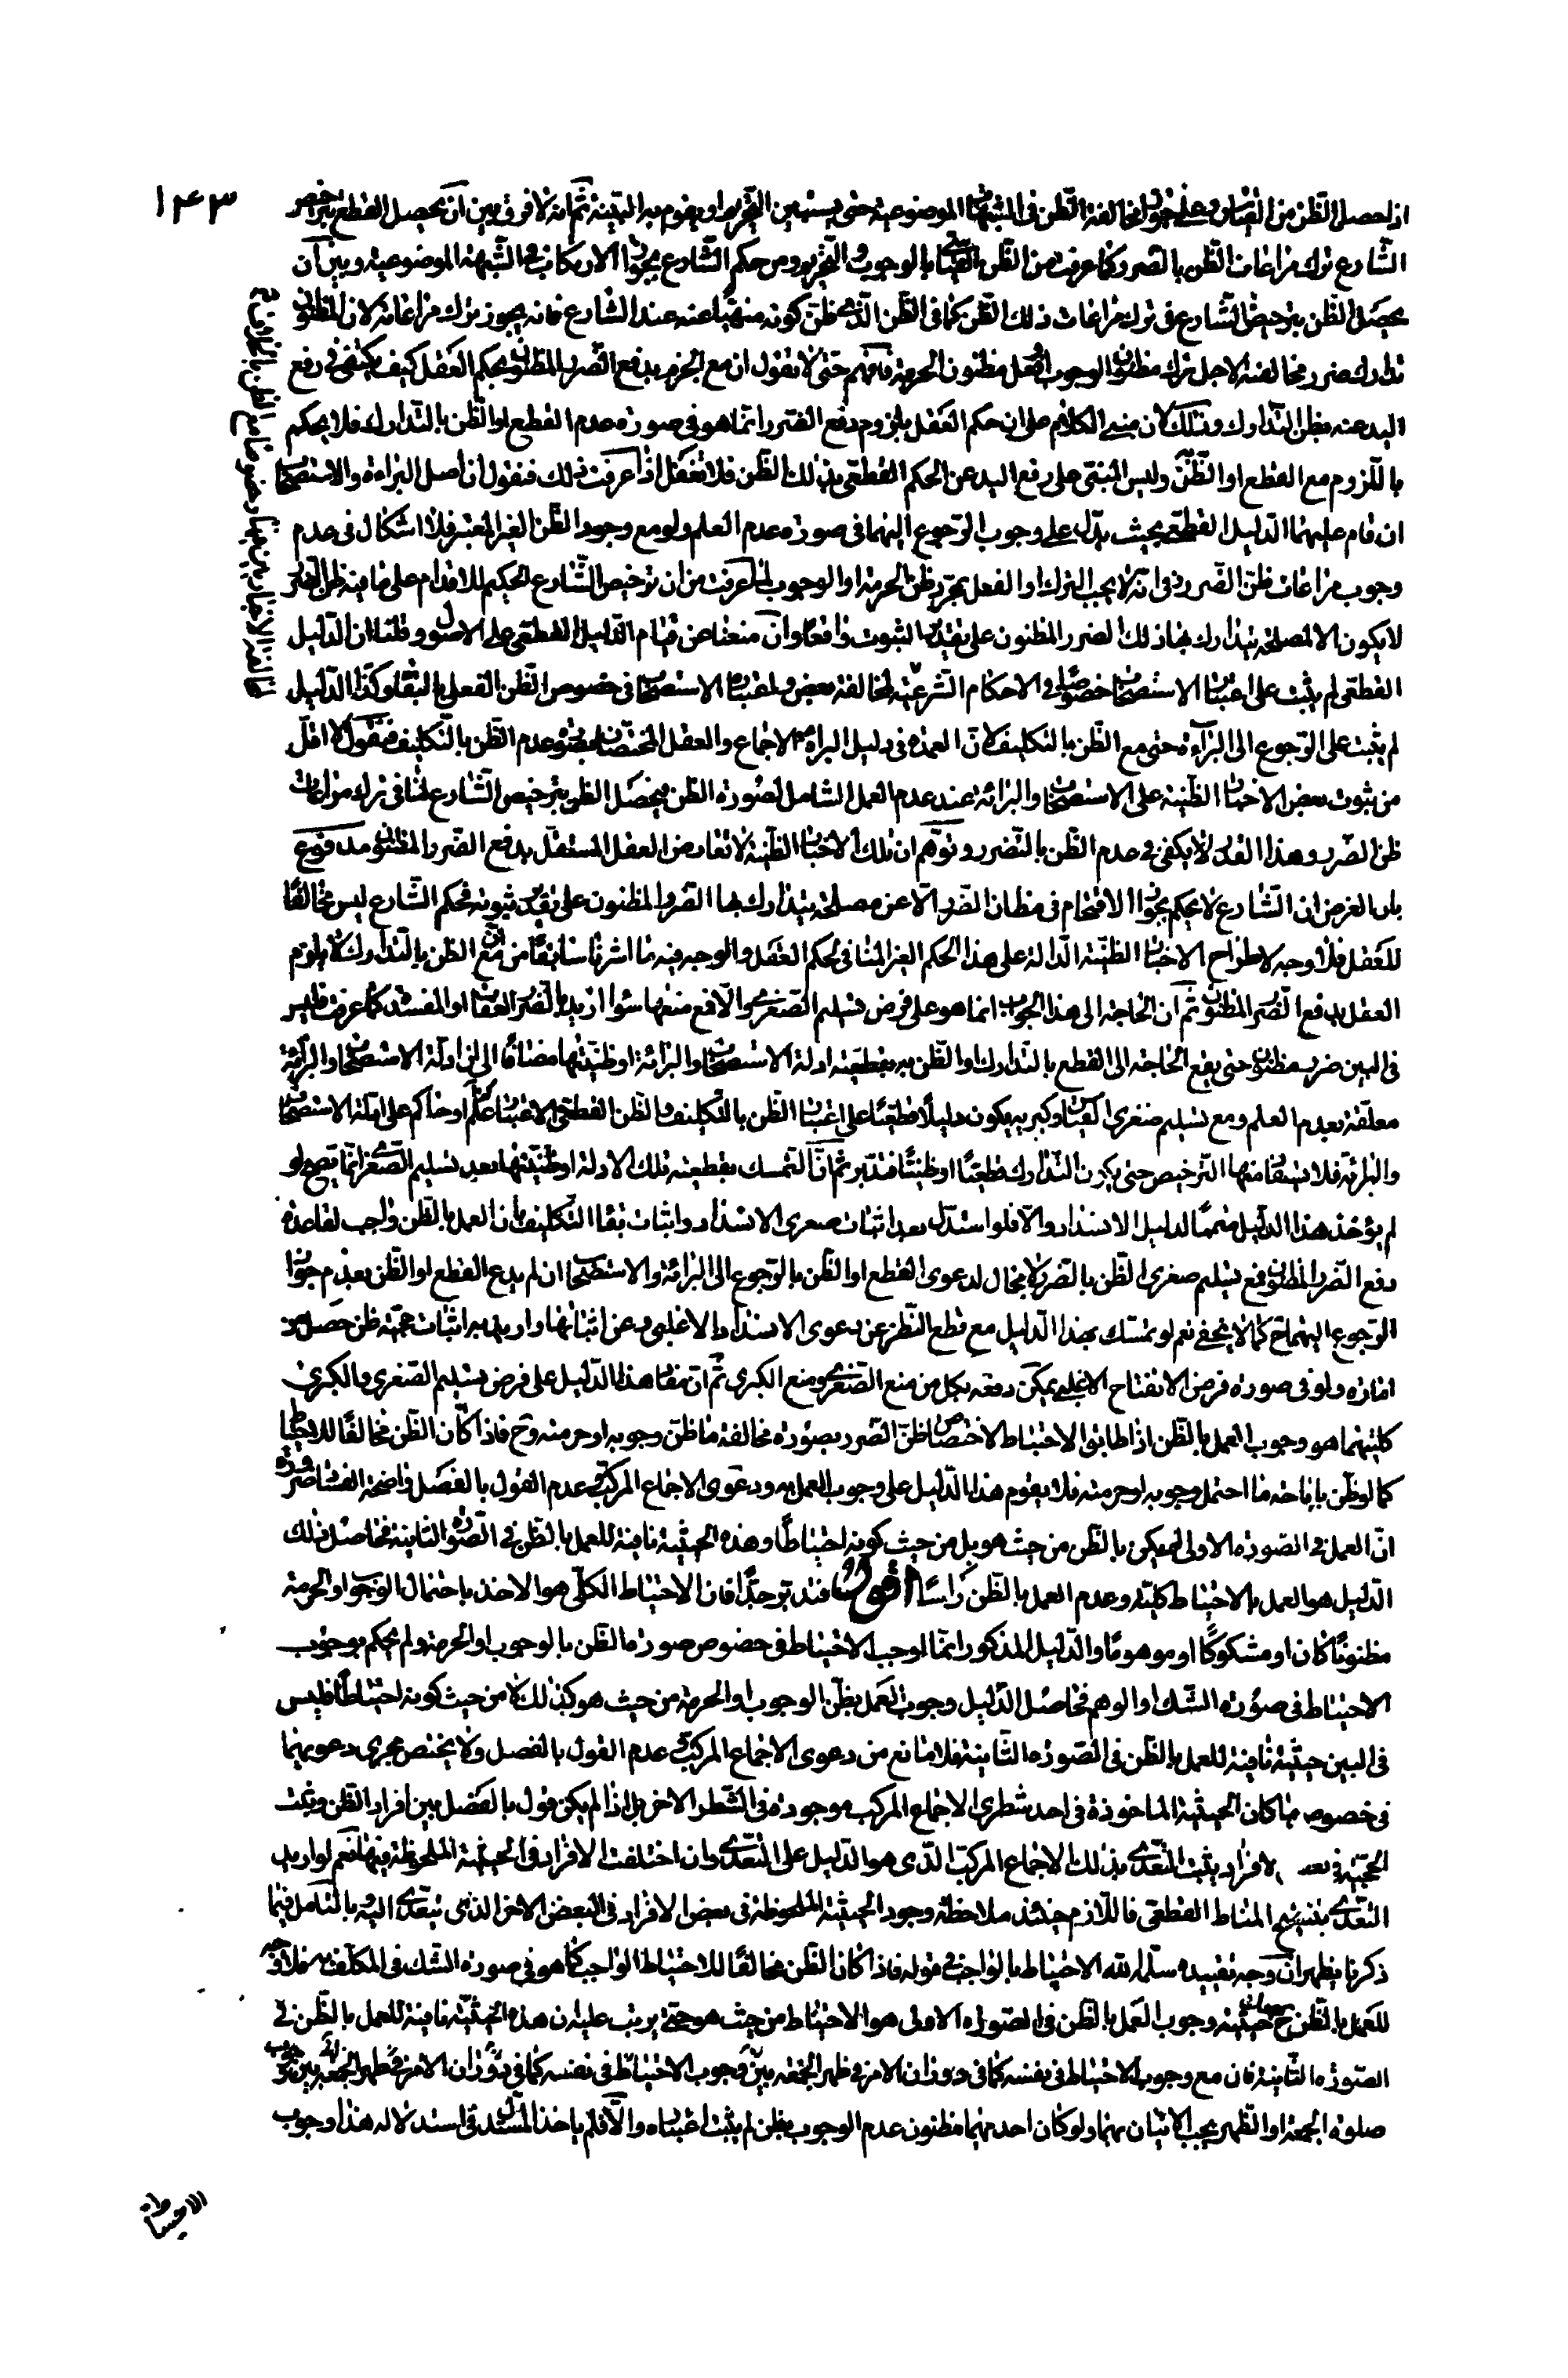 ١٤٣
اذا حصل الظن من القياس وعلى جواز مخالفة الظن فى الشبهات الموضوعية حتى يستبين التحريم او يقوم به البينة ثم انه لا فرق بين ان يحصل القطع بترخيص
الشارع ترك مراعات الظن بالضرر كما عرفت من الظن القياسى بالوجوب والتحريم ومن حكم الشارع بجواز الارتكاب فى الشبهة الموضوعية وبين ان
يحصل الظن بترخيص الشارع فى ترك مراعات ذلك الظن كما فى الظن الذى ظن كونه منهيا عنه عند الشارع فانه يجوز ترك مراعاته لان المظنون
تدارك ضرر مخالفته لاجل ترك مظنون الوجوب او فعل مظنون الحرمة فافهم حتى لا تقول ان مع الجزم بدفع الضرر المظنون بحكم العقل كيف يكتفى فى رفع
اليد عنه بظن التدارك وذلك لان مبنى الكلام على ان حكم العقل بلزوم دفع الضرر انما هو فى صورة عدم القطع او الظن بالتدارك فلا يحكم
باللزوم مع القطع او الظن وليس المبنى على رفع اليد عن الحكم القطعى بذلك الظن فلا تغفل اذا عرفت ذلك فنقول ان اصل البراءة والاستصحاب
ان قام عليهما الدليل القطعى بحيث يدل على وجوب الرجوع اليهما فى صورة عدم العلم ولو مع وجود الظن الغير المعتبر فلا اشكال فى عدم
وجوب مراعات ظن الضرر وفى انه لا يجب الترك او الفعل بمجرد ظن الحرمة او الوجوب لما عرفت من ان ترخيص الشارع الحكيم للاقدام على ما فيه ظن الضرر
لا يكون الا لمصلحة يتدارك بها ذلك الضرر المظنون على تقدير الثبوت واقعا وان منعنا عن قيام الدليل القطعى على الاصول وقلنا ان الدليل
القطعى لم يثبت على اعتبار الاستصحاب خصوصا فى الاحكام الشرعية لمخالفة بعض فى اعتبار الاستصحاب فى خصوص الظن الفعلى بالبقاء وكذا الدليل
لم يثبت على الرجوع الى البراءة حتى مع الظن بالتكليف لان العمدة فى دليل البراءة الاجماع والعقل المختصان بصورة عدم الظن بالتكليف فنقول لا اقل
من ثبوت بعض الاخبار الظنية على الاستصحاب والبرائة عند عدم العلم الشامل لصورة الظن فيحصل الظن بترخيص الشارع لنا فى ترك مراعات
ظن الضرر وهذا القدر يكفى فى عدم الظن بالتضرر وتوهم ان تلك الاخبار الظنية لا تعارض العقل المستقل بدفع الضرر المظنون مدفوع
بان الغرض ان الشارع لا يحكم بجواز الاقتحام فى مظان الضرر الا عن مصلحة يتدارك بها الضرر المظنون على تقدير ثبوته فحكم الشارع ليس مخالفا
للعقل فلا وجه لاطراح الاخبار الظنية الدالة على هذا الحكم الغير المنافى لحكم العقل والوجه فيه ما اشرنا سابقا من ان مع الظن بالتدارك لا يلزم
العقل بدفع الضرر المظنون ثم ان الحاجة الى هذا الجواب انما هو على فرض تسليم الصغرى والا فمع منعها سواء اريد بالضرر العقاب او المفسدة كما عرفت فليس
فى البين ضرر مظنون حتى يقع الحاجة الى القطع بالتدارك او الظن به بقطعية ادلة الاستصحاب والبرائة او ظنيتها مضافا الى ان ادلة الاستصحاب والبرائة
معلقة بعدم العلم ومع تسليم صغرى القياس وكبريه يكون دليلا قطعيا على اعتبار الظن بالتكليف والظن القطعى الاعتبار كالعلم او حاكم على ادلة الاستصحاب
والبرائة فلا يستفاد منها الترخيص حتى يكون التدارك قطعيا او ظنيا فتدبر ثم ان التمسك بقطعية تلك الادلة او ظنيتها بعد تسليم الصغرى انما يصح لو
لم يؤخذ هذا الدليل متمما لدليل الانسداد والا فلو استدل بعد اثبات صغرى الانسداد واثبات بقاء التكليف بان العمل بالظن واجب لقاعدة
دفع الضرر المظنون فمع تسليم صغرى الظن بالضرر لا مجال لدعوى القطع او الظن بالرجوع الى البرائة والاستصحاب ان لم يدع القطع او الظن بعدم جواز
الرجوع اليهما ح كما لا يخفى نعم لو تمسك بهذا الدليل مع قطع النظر عن دعوى الانسداد الاغلبى وعن اثباتها واريد به اثبات حجية ظن حصل من
امارة ولو فى صورة فرض الانفتاح الاغلبى يمكن دفعه بكل من منع الصغرى ومنع الكبرى ثم ان مفاد هذا الدليل على فرض تسليم الصغرى والكبرى
كليتهما هو وجوب العمل بالظن اذا طابق الاحتياط لاختصاص ظن الضرر بصورة مخالفة ما ظن وجوبه او حرمته وح فاذا كان الظن مخالفا للاحتياط
كما لو ظن باباحة ما احتمل وجوبه او حرمته فلا يقوم هذا الدليل على وجوب العمل به ودعوى الاجماع المركب وعدم القول بالفصل واضحة الفساد ضرورة
ان العمل فى الصورة الاولى لم يكن بالظن من حيث هو بل من حيث كونه احتياطا وهذه الحيثية نافية للعمل بالظن فى الصورة الثانية فحاصل ذلك
الدليل هو العمل بالاحتياط كلية وعدم العمل بالظن راسا اقول فتدبر جدا فان الاحتياط الكلى هو الاخذ باحتمال الوجوب او الحرمة
مظنونا كان او مشكوكا او موهوما والدليل المذكور انما اوجب الاحتياط فى خصوص صورة الظن بالوجوب او الحرمة ولم يحكم بوجوب
الاحتياط فى صورة الشك او الوهم فحاصل الدليل وجوب العمل بظن الوجوب او الحرمة من حيث هو كذلك لا من حيث كونه احتياطا فليس
فى البين حيثية نافية للعمل بالظن فى الصورة الثانية فلا مانع من دعوى الاجماع المركب وعدم القول بالفصل ولا يختص مجرى دعويهما
فى خصوص ما كان الحيثية الماخوذة فى احد شطرى الاجماع المركب موجودة فى الشطر الاخر بل اذا لم يكن قول بالفصل بين افراد الظن وثبت
الحجية فى بعض الافراد يثبت التعدى بذلك الاجماع المركب الذى هو الدليل على التعدى وان اختلفت الافراد فى الحيثية الملحوظة فيها نعم لو اريد
التعدى بتنقيح المناط القطعى فاللازم حينئذ ملاحظة وجود الحيثية الملحوظة فى بعض الافراد فى البعض الاخر الذى يتعدى اليه وبالتامل فيما
ذكرنا يظهر ان وجه تقييده سلمه الله الاحتياط بالواجب فى قوله فاذا كان الظن مخالفا للاحتياط الواجب كما هو فى صورة الشك فى المكلف به فلا وجه
للعمل بالظن ح حيثية وجوب العمل بالظن فى الصورة الاولى هو الاحتياط من حيث هو حتى يرتب عليه ان هذه الحيثية نافية للعمل بالظن فى
الصورة الثانية فان مع وجوب الاحتياط فى نفسه كما فى دوران الامر فى ظهر الجمعة بين وجوب
صلوة الجمعة او الظهر يجب الاتيان بهما ولو كان احد منهما مظنون عدم الوجوب بظن لم يثبت اعتباره والا فلم ياخذ المستدل فى استدلاله هذا وجوب